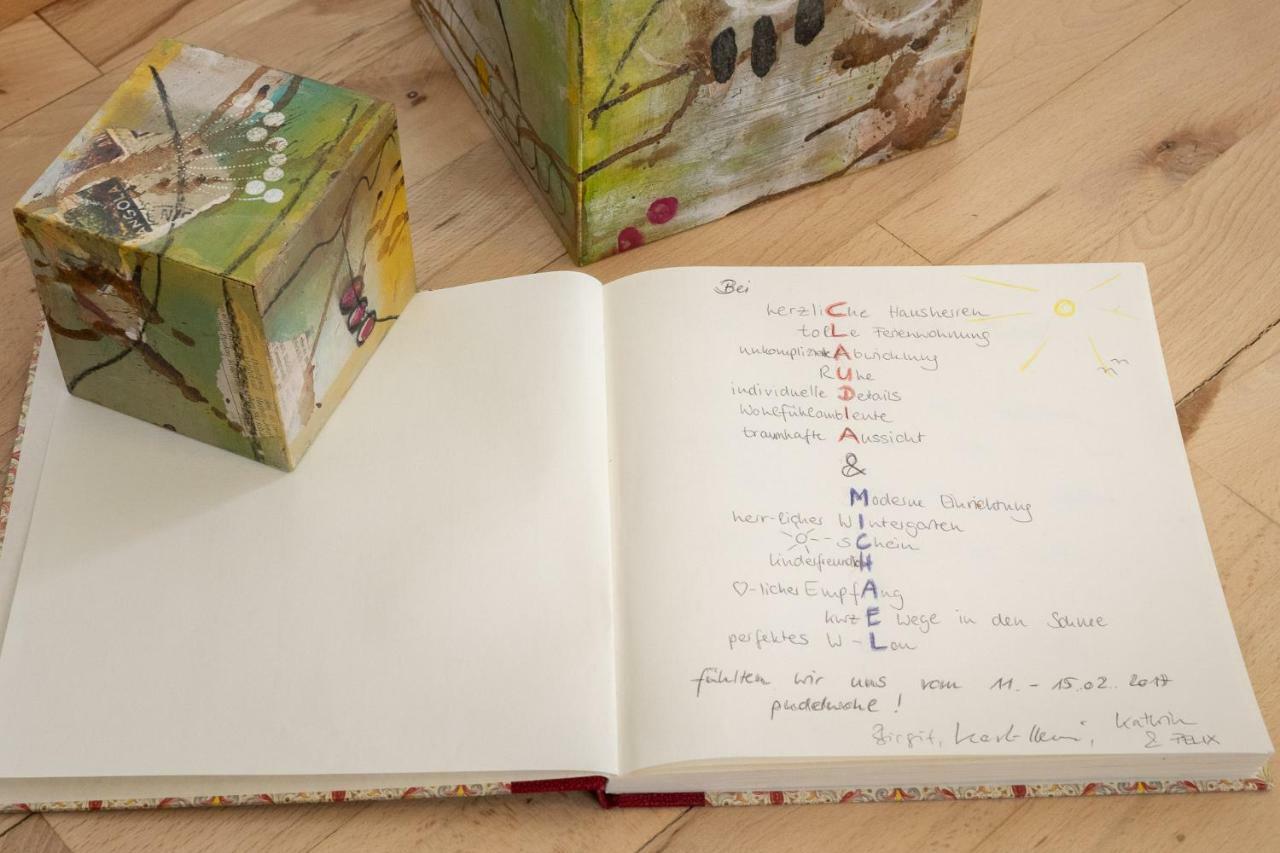 Bei
herzliChe Hausherren
tolLe Ferienwohnung
unkomplizierte Abwicklung
RUhe
individuelle Details
WohlfühlambIente
traumhafte Aussicht
&
Moderne Einrichtung
herr-licher WIntergarten
-- sChein
kinderfreundlicH
♡-licher EmpfAng
kurzE Wege in den Schnee
perfektes W-Lan
fühlten wir uns vom 11. - 15.02. 2017
pudelwohl !
Birgit, Karl-Heinz, Kathrin
& FELIX